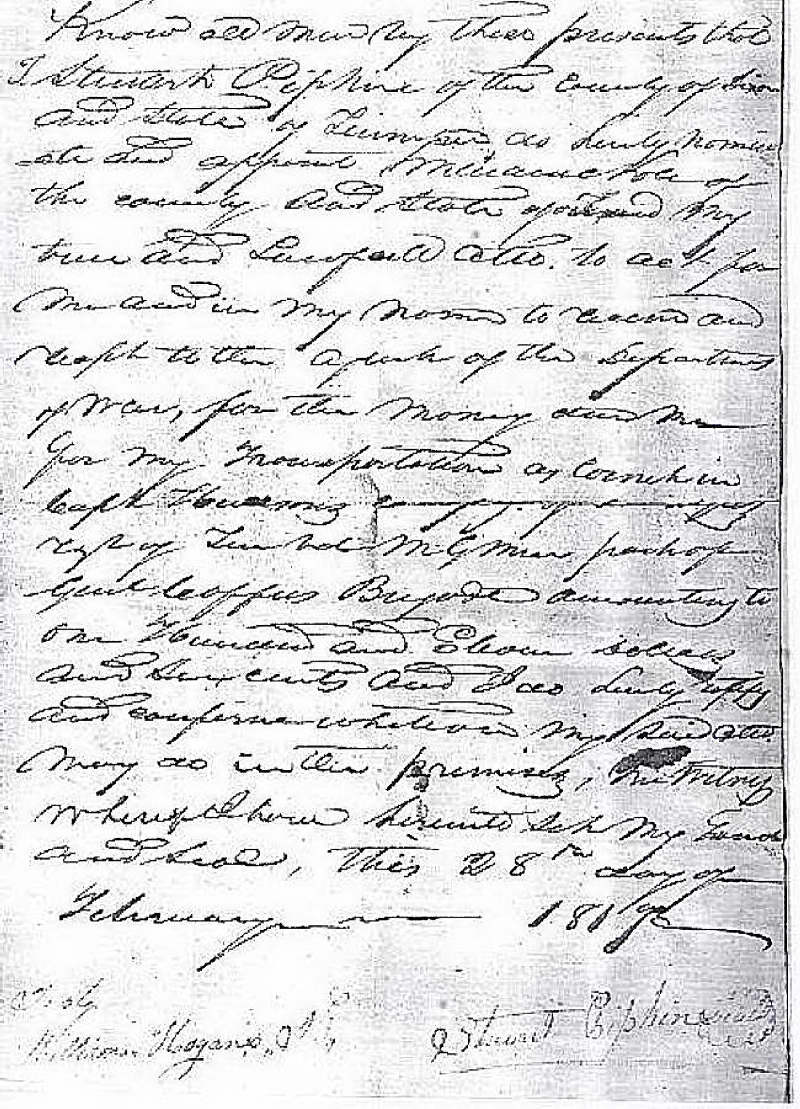 Know all men by these presents that
I Stewart Pipkin of the County of Dixon
and State of Tennessee do hereby nomin
ate and appoint of
the county and State aforesaid my
true and Lawfull Atto. to act for
me and in my name to receive and
rcept to the agent of the Department
of War, for the money due me
for my Transportation as Cornet in
Capt company of
regt of Ten Vol M G Men part of
Genl Coffees Brigade amounting to
one Hundred and Eleven dollars
and cents and I do hereby rattify
and conferm whatever my said atto.
may do in the premises, In Witness
whereof I have hereunto Set my hand
and Seal, this 28th day of
February 181
Test
William Hogans, JP
Stuart Pipkin seal